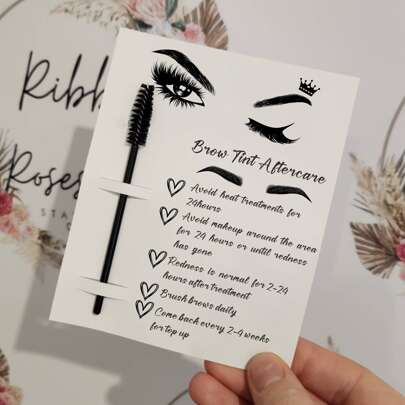 Ribb
Roses
STA
Brow Tint Aftercare
Avoid heat treatments for
24hours
Avoid makeup around the area
for 24 hours or until redness
has gone
Redness is normal for 2-24
hours after treatment
Brush brows daily
Come back every 2-4 weeks
for top up